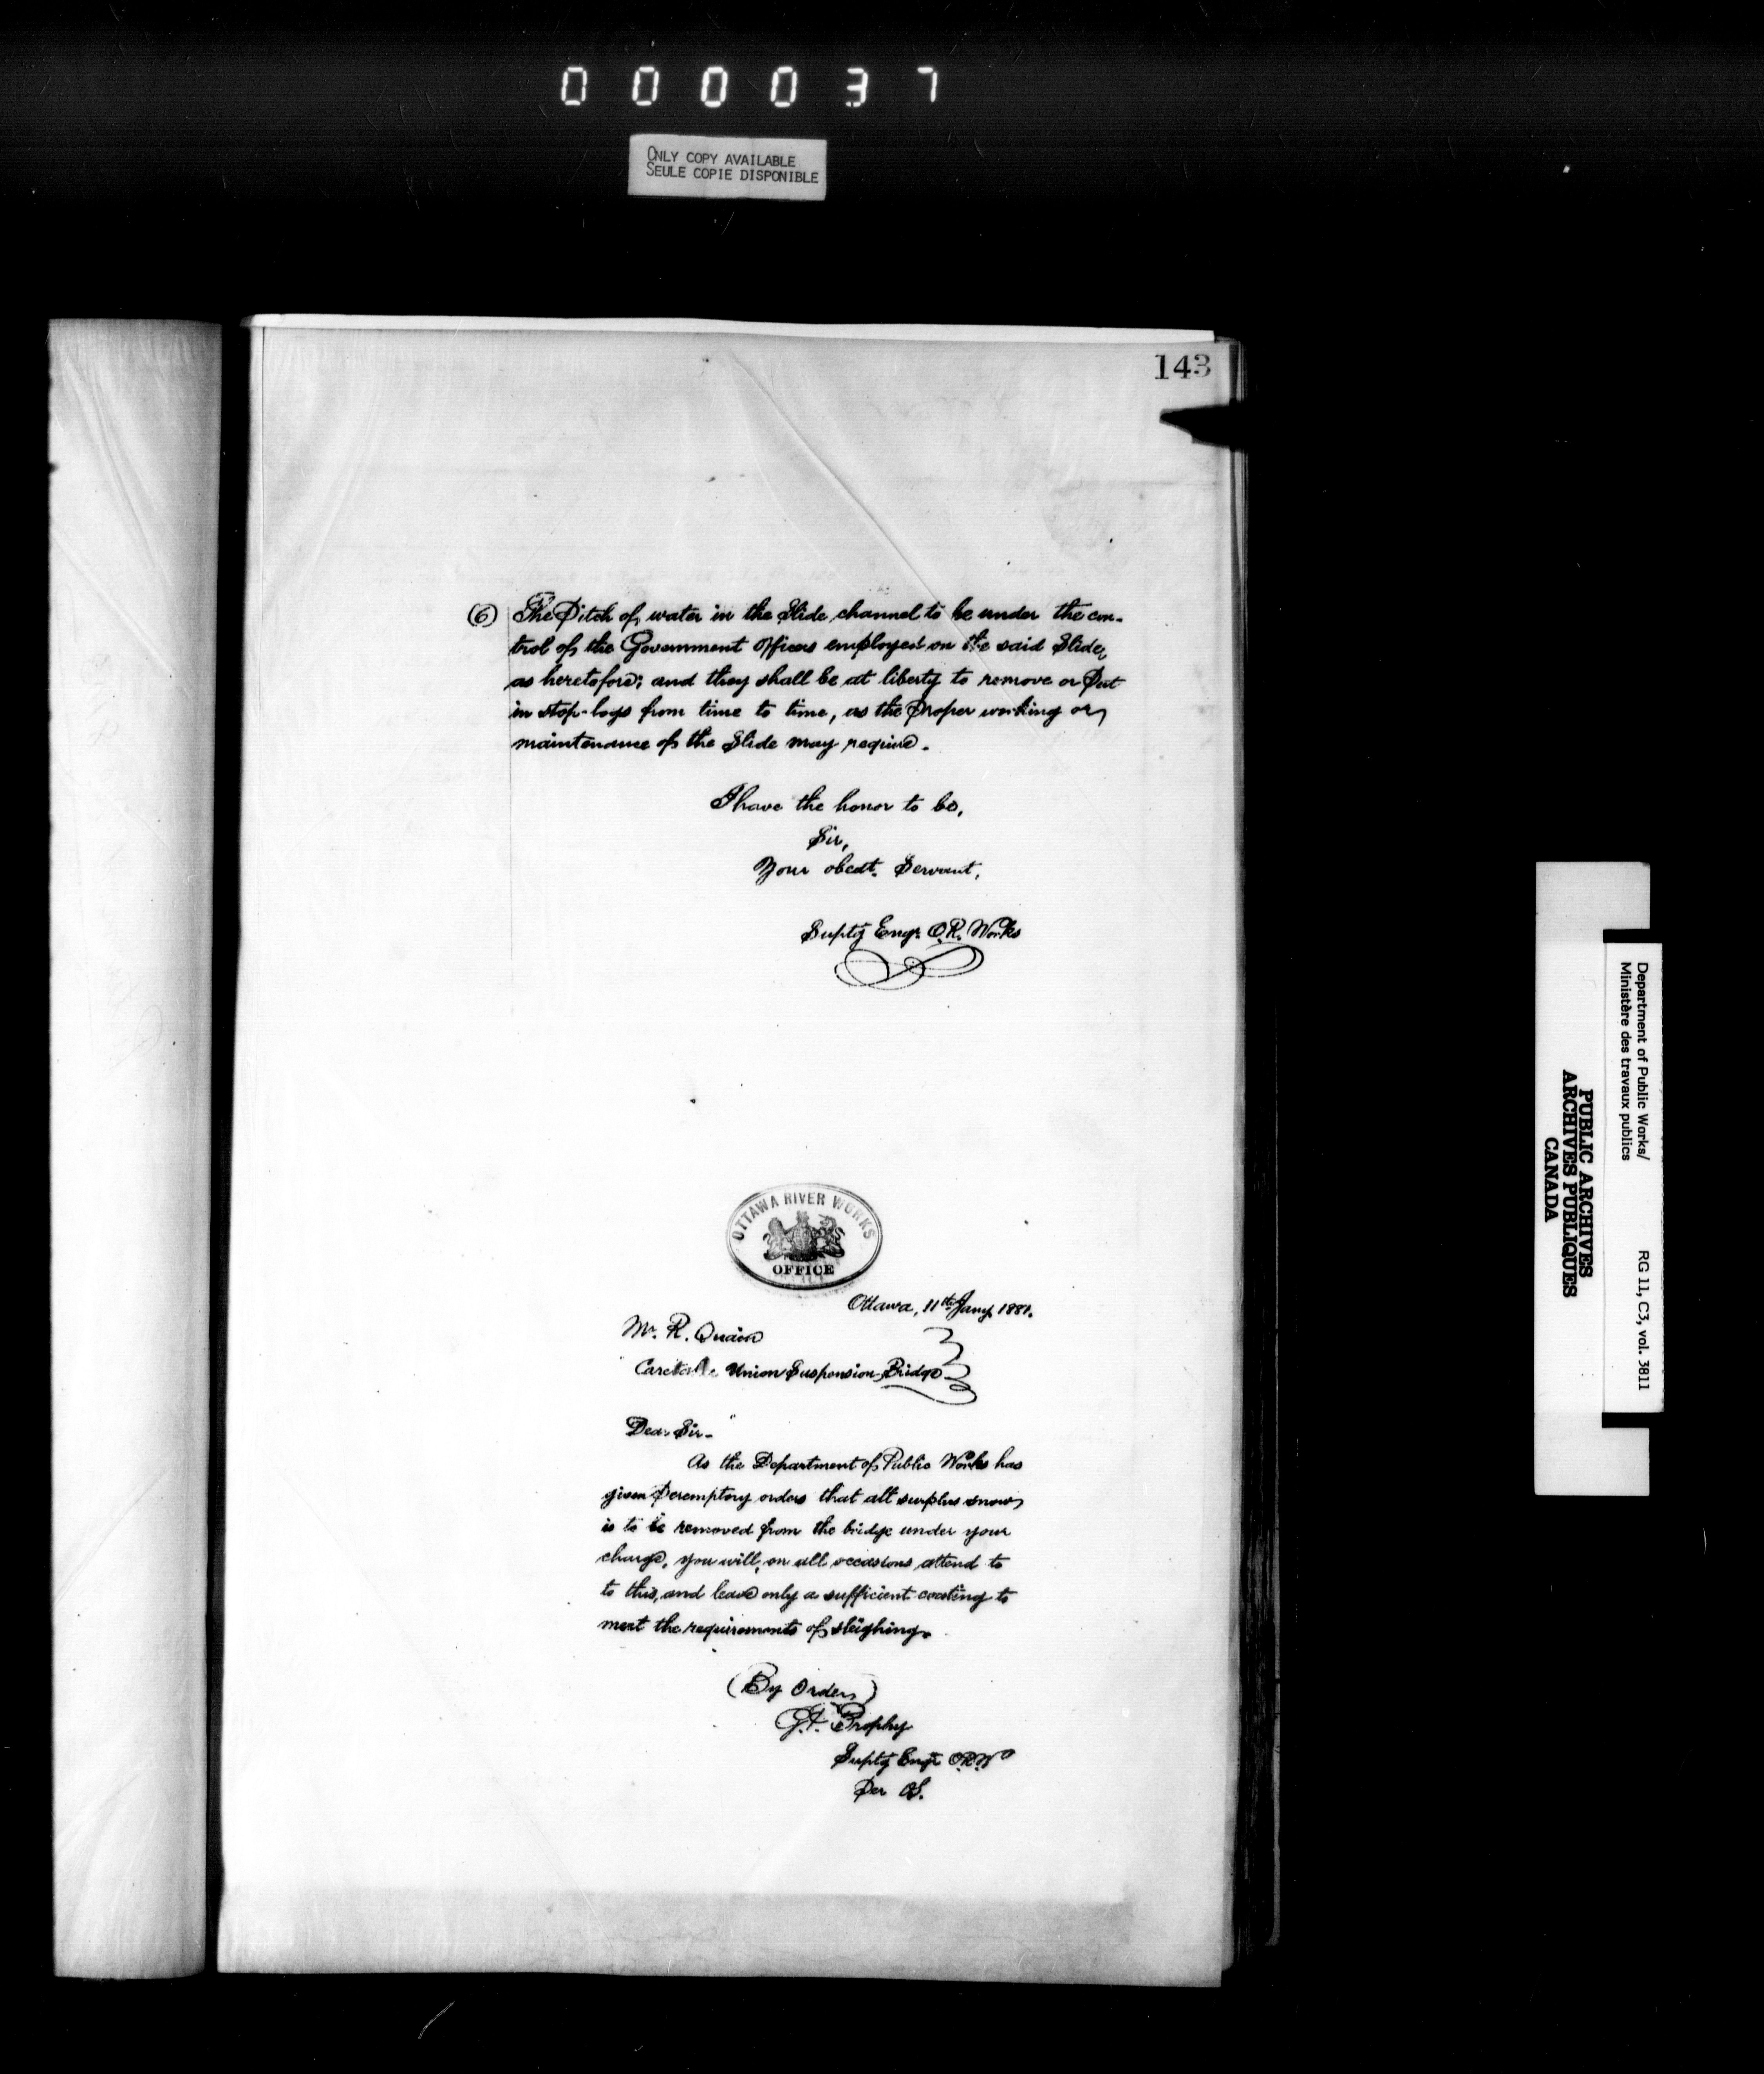 000037
ONLY COPY AVAILABLE
SEULE COPIE DISPONIBLE
143
(6) The Pitch of water in the Slide channel to be under the con-
trol of the Government Officers employed on the said Slide,
as heretofore; and they shall be at liberty to remove or Put
in stop-logs from time to time, as the Proper working or
maintenance of the Slide may require.
I have the honor to be,
Sir,
Your obedt. Servant,
Suptg Engr. O.R. Works
OTTAWA RIVER WORKS
OFFICE
Ottawa, 11th Jany. 1881.
Mr. R. Quain
Union Suspension Bridge
Dear Sir-
As the Department of Public Works has
given Peremptory orders that all surplus snow
is to be removed from the bridge under your
charge, you will, on all occasions attend to
to this, and leave only a sufficient coating to
meet the requirements of sleighing.
(By Order)
G.P. Brophy
Suptg Engr O.R.W
Per
Department of Public Works/
Ministère des travaux publics
RG 11, C3, vol. 3811
PUBLIC ARCHIVES
ARCHIVES PUBLIQUES
CANADA